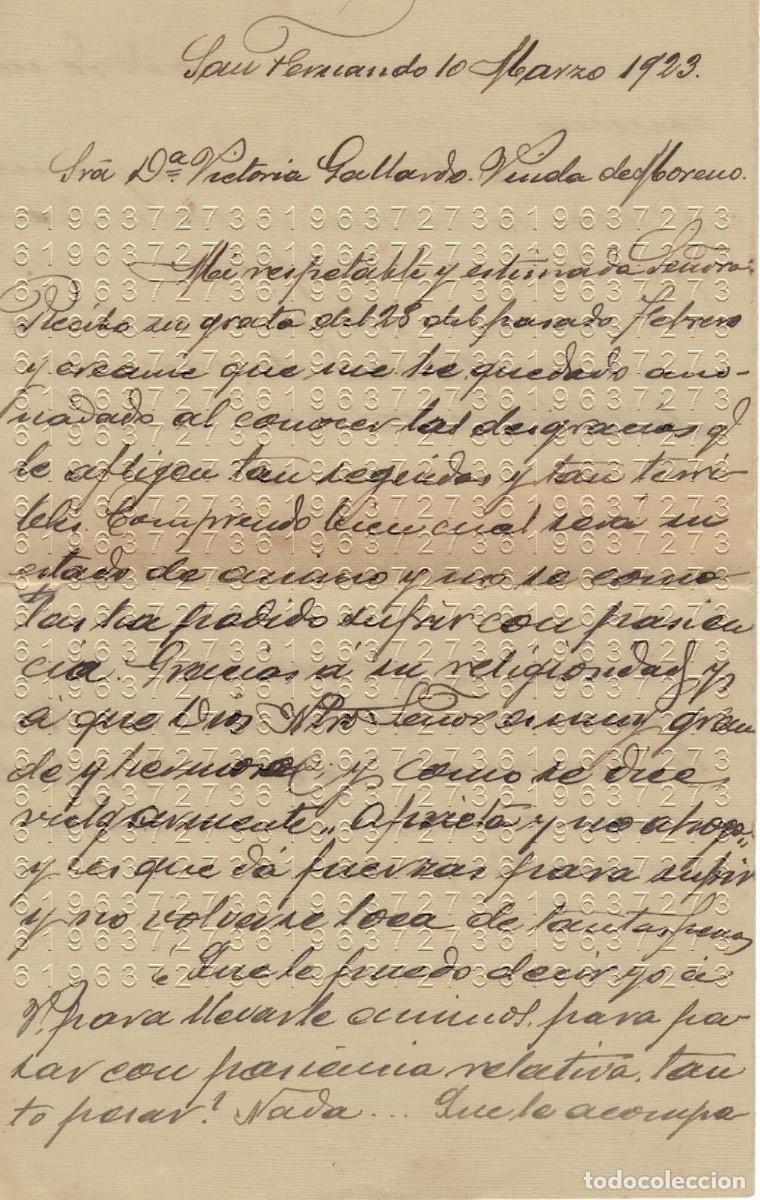 San Fernando 10 Marzo 1923.
Srā Dª Victoria Gallardo. Viuda de Moreno.
Mi respetable y estimada Señora:
Recibo su grata del 28 del pasado Febrero
y creame que me he quedado ano-
nadado al conocer las desgracias q
le afligen tan seguidas y tan terri-
bles. Comprendo bien cual será su
estado de animo y no se como
las ha podido sufrir con pasien
cia. Gracias á su religiondad y
á que Dios Ntro Señor es muy gran
de y hermoso y como se dice
vulgarmente "Aprieta y no ahoga"
y es que dá fuerzas para sufrir
y no volverse loca de tantas penas
¿Que le puedo decir yo á
V. para llevarle animos, para pa-
sar con pasiencia relativa, tan
to pesar? Nada... Que le acompa-
619637273619637273619637273
todocoleccion